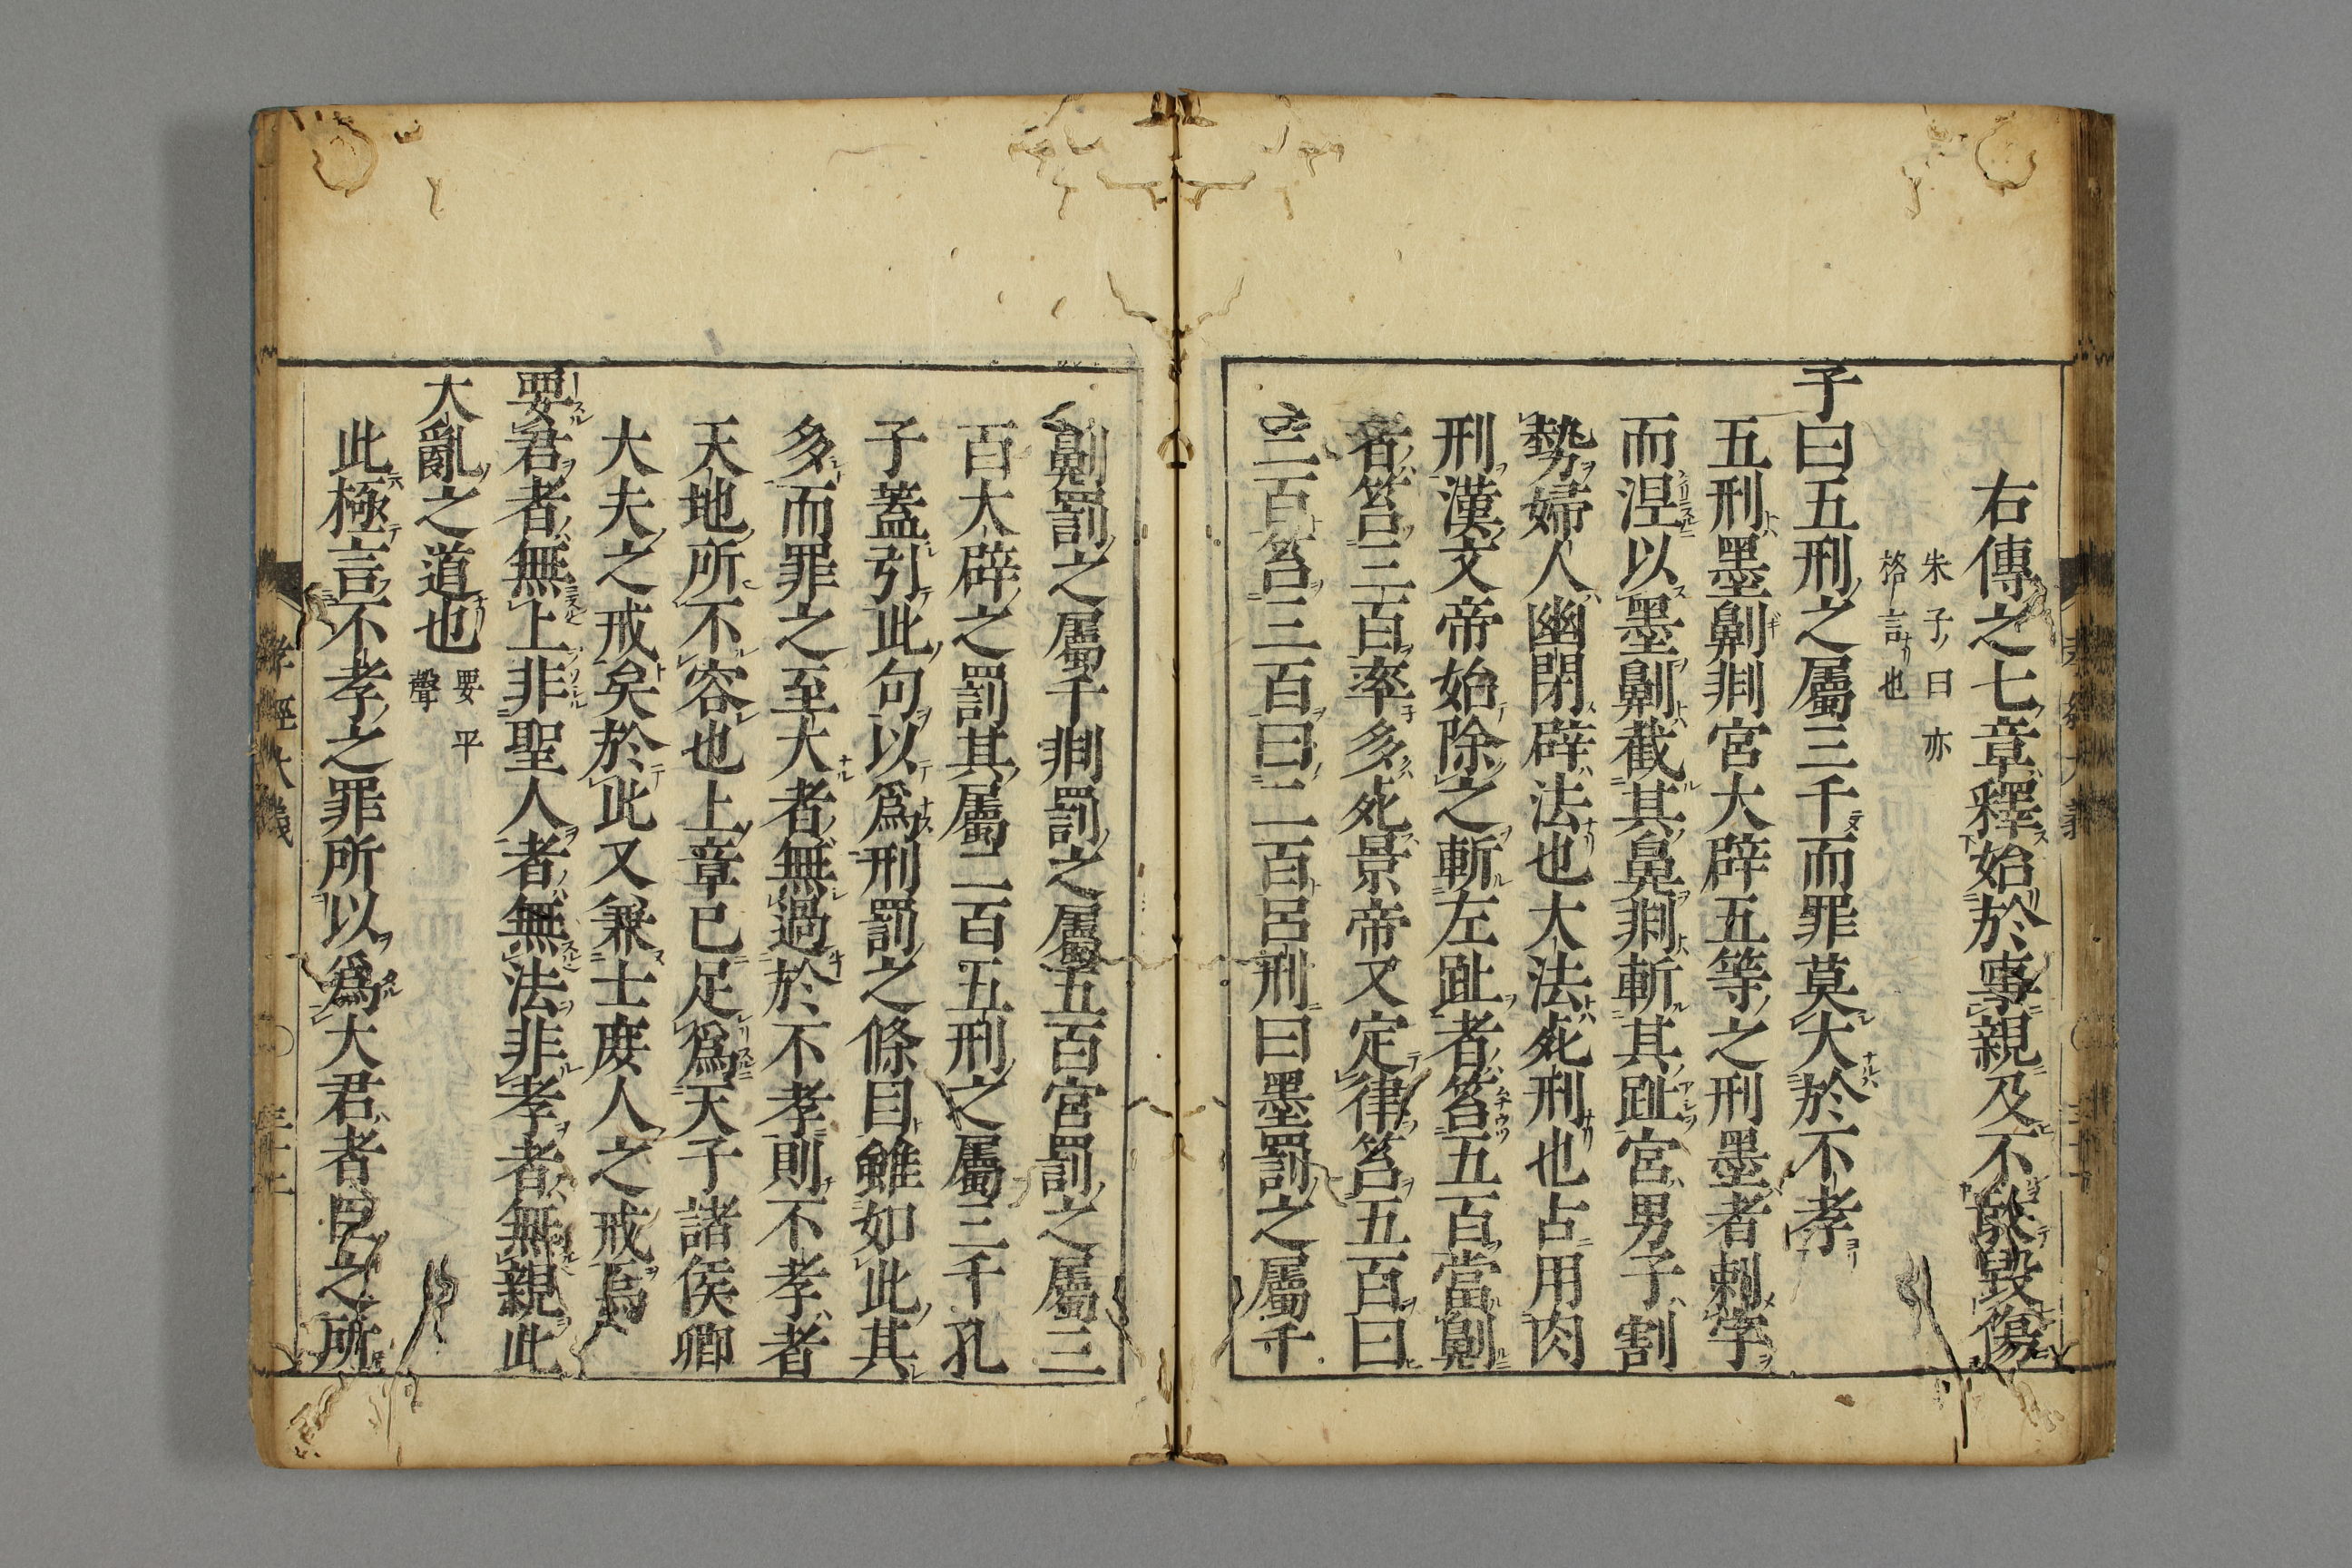 右傳之七章釋始於事親及不敢毀傷
朱子曰亦
格言也
子曰五刑之屬三千而罪莫大於不孝
五刑墨劓剕宮大辟五等之刑墨者刺字
而涅以墨劓截其鼻剕斬其趾宮男子割
勢婦人幽閉辟法也大法死刑也占用肉
刑漢文帝始除之斬左趾者笞五百當劓
者笞三百率多死景帝又定律笞五百曰
三百笞三百曰二百呂刑曰墨罰之屬千
劓罰之屬千剕罰之屬五百宮罰之屬三
百大辟之罰其屬二百五刑之屬三千孔
子蓋引此句以爲刑罰之條目雖如此其
多而罪之至大者無過於不孝則不孝者
天地所不容也上章已足爲天子諸侯卿
大夫之戒矣於此又兼士庶人之戒焉
要君者無上非聖人者無法非孝者無親此
大亂之道也
要平
聲
此極言不孝之罪所以爲大君者臣之所
孝經大義